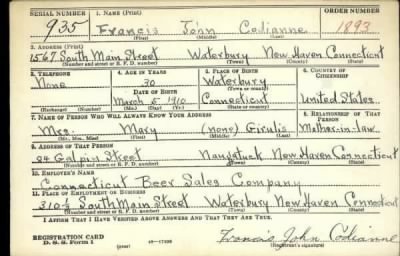 SERIAL NUMBER 1. NAME (Print) ORDER NUMBER
935 Francis John Codianne 1893
(First) (Middle) (Last)
3. ADDRESS (Print)
1567 South Main Street Waterbury New Haven Connecticut
(Number and street or R. F. D. number) (Town) (County) (State)
3. TELEPHONE 4. AGE IN YEARS 5. PLACE OF BIRTH 6. COUNTRY OF CITIZENSHIP
None 30 Waterbury
DATE OF BIRTH (Town or county)
March 5 1910 Connecticut United States
(Exchange) (Number) (Mo.) (Day) (Yr.) (State or country)
7. NAME OF PERSON WHO WILL ALWAYS KNOW YOUR ADDRESS 8. RELATIONSHIP OF THAT PERSON
Mrs. Mary (none) Girulis Mother-in-law
(Mr., Mrs., Miss) (First) (Middle) (Last)
9. ADDRESS OF THAT PERSON
84 Galpin Street Naugatuck New Haven Connecticut
(Number and street or R. F. D. number) (Town) (County) (State)
10. EMPLOYER'S NAME
Connecticut Beer Sales Company
11. PLACE OF EMPLOYMENT OR BUSINESS
310½ South Main Street Waterbury New Haven Connecticut
(Number and street or R. F. D. number) (Town) (County) (State)
I AFFIRM THAT I HAVE VERIFIED ABOVE ANSWERS AND THAT THEY ARE TRUE.
REGISTRATION CARD
D. S. S. Form 1 (over) Francis John Codianne
(Registrant's signature)